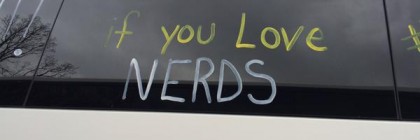 if you Love
NERDS